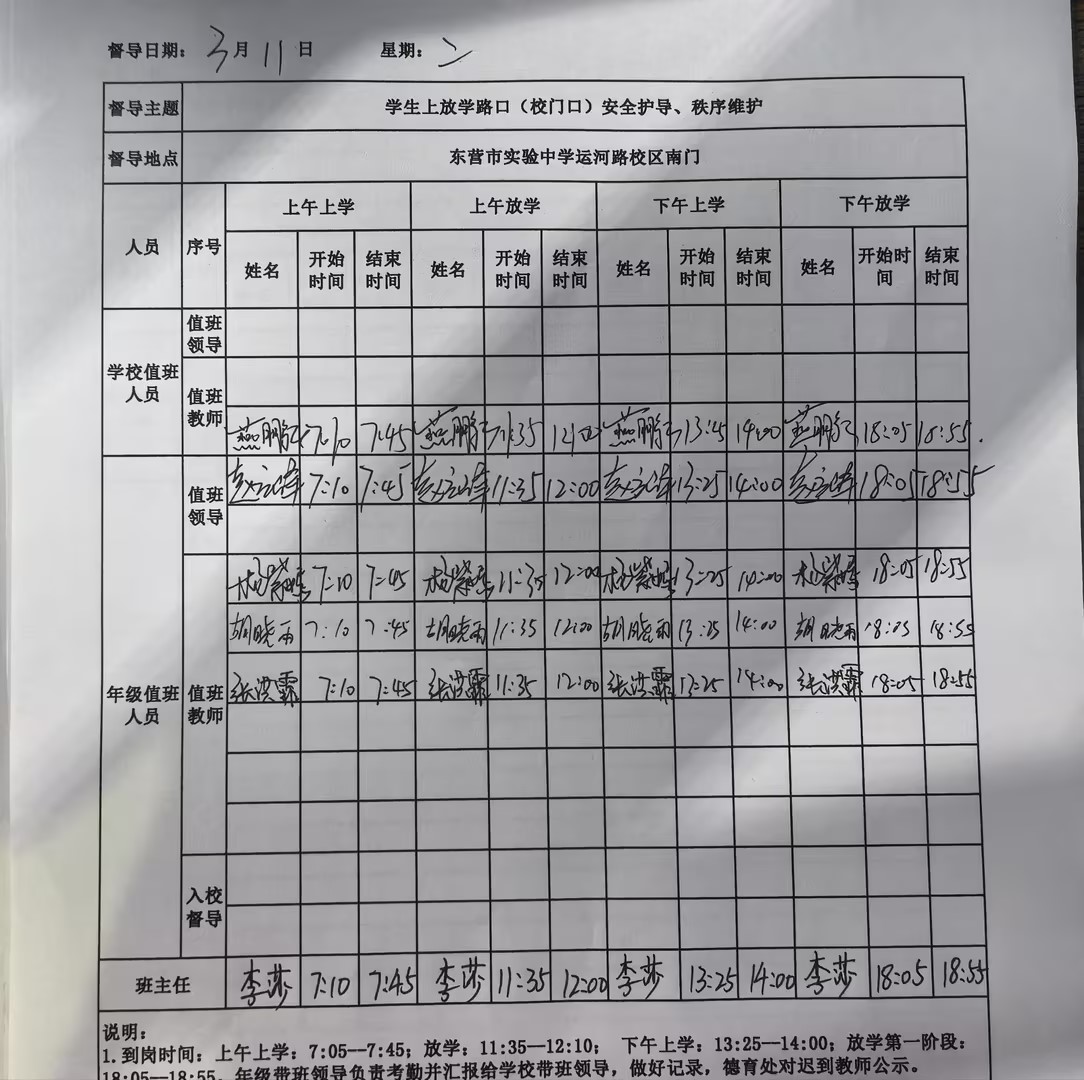 督导日期：3月11日 星期：二
督导主题 学生上放学路口（校门口）安全护导、秩序维护
督导地点 东营市实验中学运河路校区南门
人员 序号 上午上学 上午放学 下午上学 下午放学
姓名 开始时间 结束时间 姓名 开始时间 结束时间 姓名 开始时间 结束时间 姓名 开始时间 结束时间
学校值班人员 值班领导
值班教师 7:10 7:45 11:35 12:00 13:25 14:00 18:05 18:55
年级值班人员 值班领导 7:10 7:45 11:35 12:00 13:25 14:00 18:05 18:55
值班教师 7:10 7:45 11:35 12:00 13:25 14:00 18:05 18:55
胡晓雨 7:10 7:45 胡晓雨 11:35 12:00 胡晓雨 13:25 14:00 胡晓雨 18:05 18:55
张洪霖 7:10 7:45 张洪霖 11:35 12:00 张洪霖 13:25 14:00 张洪霖 18:05 18:55
入校督导
班主任 李莎 7:10 7:45 李莎 11:35 12:00 李莎 13:25 14:00 李莎 18:05 18:55
说明：
1.到岗时间：上午上学：7:05--7:45；放学：11:35--12:10； 下午上学：13:25--14:00；放学第一阶段：
18:05--18:55。年级带班领导负责考勤并汇报给学校带班领导，做好记录，德育处对迟到教师公示。